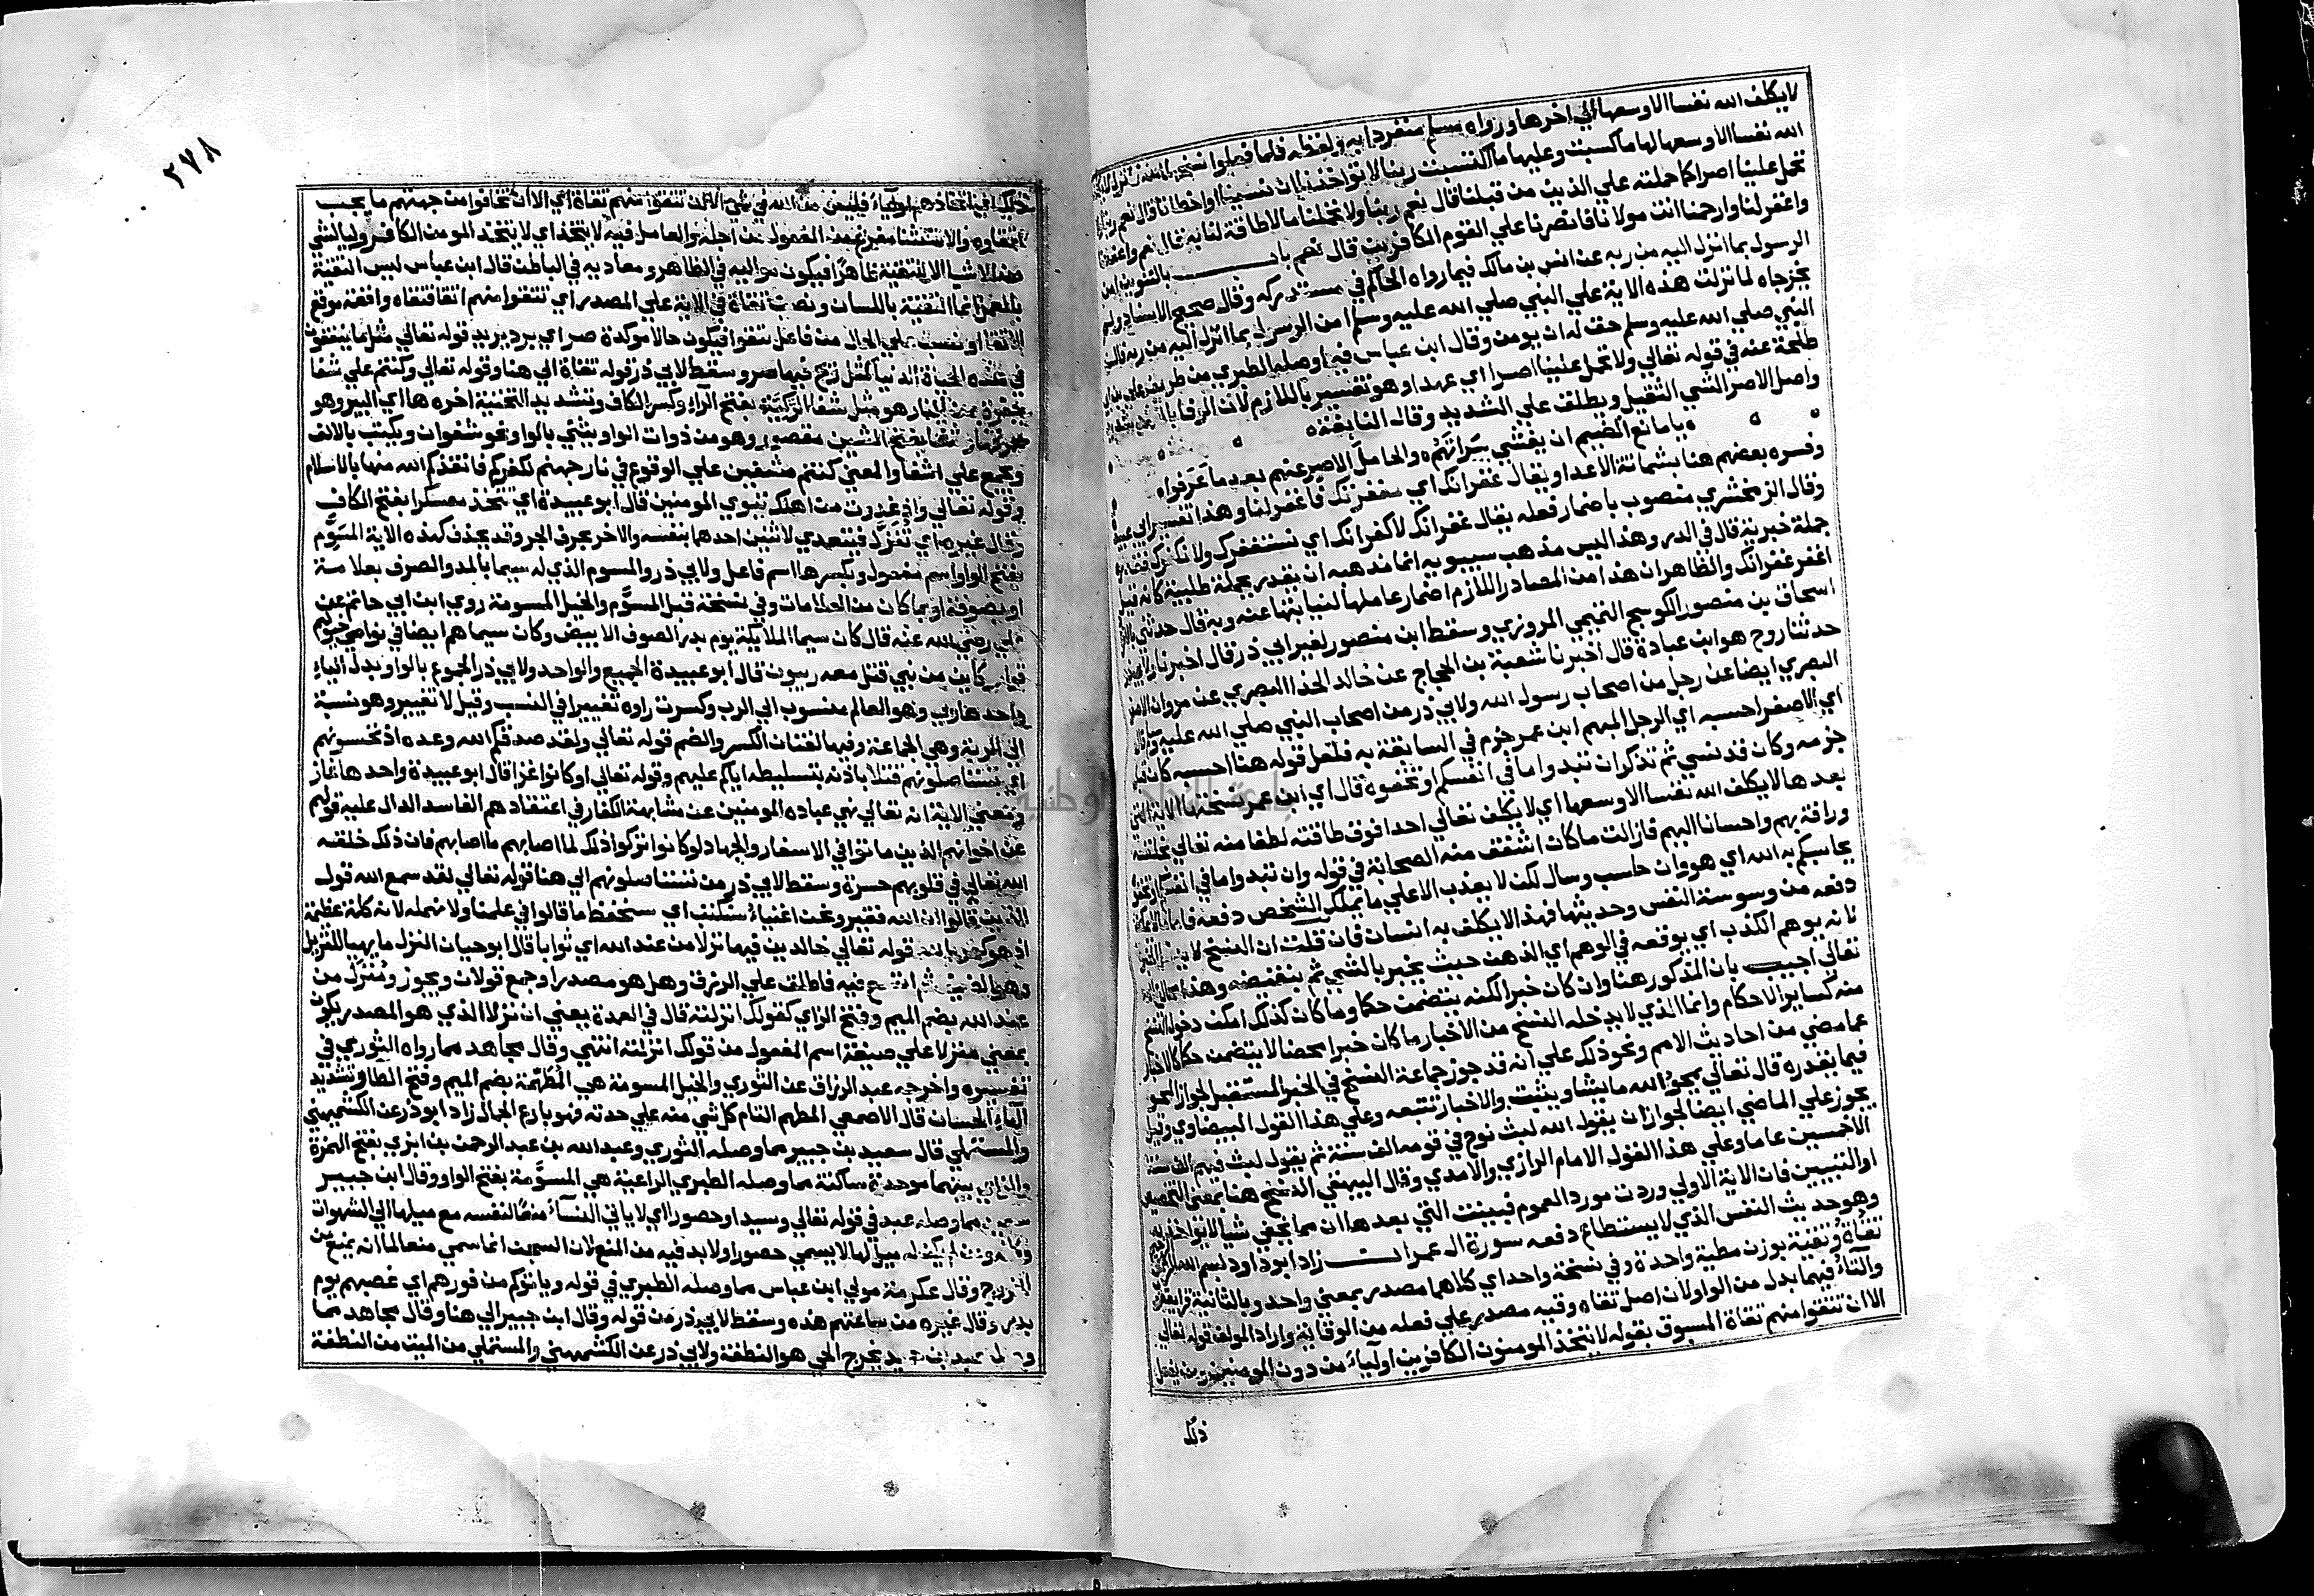 لا يكلف الله نفسا الا وسعها الي اخرها ورواه مسلم منفردا به ولفظه فلما فعلوا
الله نفسا الا وسعها لها ما كسبت وعليها ما اكتسبت ربنا لا تواخذنا ان نسينا او اخطانا قال نعم ربنا
تحمل علينا اصرا كما حملته علي الذين من قبلنا قال نعم ربنا ولا تحملنا ما لا طاقة لنا به قال نعم واعف
واغفر لنا وارحمنا انت مولانا فانصرنا علي القوم الكافرين قال نعم باب بالتنوين امن
الرسول بما انزل اليه من ربه عن انس بن مالك فيما رواه الحاكم في مستدركه وقال صحيح الاسناد ولم
يخرجاه لما نزلت هذه الاية علي النبي صلي الله عليه وسلم امن الرسول بما انزل اليه من ربه قال
النبي صلي الله عليه وسلم حق له ان يومن وقال ابن عباس فيما وصله الطبري من طريق علي بن ابي
طلحة عنه في قوله تعالي ولا تحمل علينا اصرا اي عهدا وهو تفسير باللازم لان الوفا
واصل الاصر الشي الثقيل ويطلق علي الشديد وقال النابغة
يا مانع الضيم ان يغشي سراتهم والحامل الاصر عنهم بعد ما عرفوا
وفسره بعضهم هنا بشماتة الاعدا ويقال غفرانك اي مغفرتك فاغفر لنا وهذا تفسير ابي عبيدة
وقال الزمخشري منصوب باضمار فعله يقال غفرانك لا كفرانك اي نستغفرك ولا نكفرك فقدره
جملة خبرية قال في الدر وهذا ليس مذهب سيبويه انما مذهبه ان يقدر بجملة طلبية كانه قيل
اغفر غفرانك والظاهر ان هذا من المصادر اللازم اضمار عاملها لنيابتها عنه وبه قال حدثني
اسحاق بن منصور الكوسج التميمي المروزي وسقط ابن منصور لغير ابي ذر قال اخبرنا ولابي ذر
حدثنا روح هو ابن عبادة قال اخبرنا شعبة بن الحجاج عن خالد الحذا البصري عن مروان الاصفر
البصري ايضا عن رجل من اصحاب رسول الله ولابي ذر من اصحاب النبي صلي الله عليه وسلم قال
اي الاصفر احسبه اي الرجل المبهم ابن عمر جزم في السابقة به فلعل قوله هنا احسبه كان قبل
جزمه وكان قد نسي ثم تذكر ان تبدوا ما في انفسكم او تخفوه قال اي ابن عمر نسختها الاية التي
بعدها لا يكلف الله نفسا الا وسعها اي لا يكلف تعالي احدا فوق طاقته لطفا منه تعالي بخلقه
ورافة بهم واحسانا اليهم فازالت ما كان اشفق منه الصحابة في قوله وان تبدوا ما في انفسكم او تخفوه
يحاسبكم به الله اي هو وان حاسب وسال لكن لا يعذب الا علي ما يملك الشخص دفعه فاما ما لا يمكن
دفعه من وسوسة النفس وحديثها فهذا لا يكلف به انسان فان قلت ان النسخ لا يدخل الخبر
لانه يوهم الكذب اي يوقعه في الوهم اي الذهن حيث يخبر بالشي ثم بنقيضه وهذا محال علي الله
تعالي اجيب بان المذكور هنا وان كان خبرا لكنه يتضمن حكما وما كان كذلك امكن دخول النسخ
منه كساير الاحكام وانما الذي لا يدخله النسخ من الاخبار ما كان خبرا محضا لا يتضمن حكما كالاخبار
عما مضي من احاديث الامم ونحو ذلك علي انه قد جوز جماعة النسخ في الخبر المستقبل لجواز المحو
فيما يقدره قال تعالي يمحو الله ما يشا ويثبت والاخبار تتبعه وعلي هذا القول البيضاوي وقيل
يجوز علي الماضي ايضا لجواز ان يقول الله لبث نوح في قومه الف سنة ثم يقول لبث فيهم الف سنة
الا خمسين عاما وعلي هذا القول الامام الرازي والامدي وقال البيهقي النسخ هنا بمعني التخصيص
او التبيين فان الاية الاولي وردت مورد العموم فبينت التي بعدها ان مما يخفي شيا لا يواخذ به
وهو حديث النفس الذي لا يستطاع دفعه سورة ال عمران زاد ابو ذر بسم الله الرحمن
تقاة وتقية بوزن مطية واحدة وفي نسخة واحد اي كلاهما مصدر بمعني واحد وبالثانية قرا يعقوب
والتاء فيهما بدل من الواو لان اصل تقاه وقيه مصدر علي فعله من الوقاية واراد المولف قوله تعالي
الا ان تتقوا منهم تقاة المسبوق بقوله لا يتخذ المومنون الكافرين اولياء من دون المومنين ومن يفعل
ذلك
٢٧٨
ذلك اي اتخاذهم اولياء فليس من الله في شي الا ان تتقوا منهم تقاة اي الا ان تخافوا من جهتهم ما يجب
اتقاوه والاستثنا مفرغ من المفعول من اجله والعامل فيه لا يتخذ اي لا يتخذ المومن الكافر وليا لشي
من الاشيا الا للتقية ظاهرا فيكون مواليه في الظاهر ومعاديه في الباطن قال ابن عباس ليس التقية
بالعمل انما التقية باللسان ونصب تقاة في الاية علي المصدر اي تتقوا منهم اتقا فتقاه واقعة موقع
الاتقا او نصب علي الحال من فاعل تتقوا فيكون حالا موكدة صر اي برد يريد قوله تعالي مثل ما ينفقون
في هذه الحياة الدنيا كمثل ريح فيها صر وسقط لابي ذر قوله تقاة الي هنا وقوله تعالي وكنتم علي شفا
حفرة من النار هو مثل شفا الركية بفتح الراء وكسر الكاف وتشديد التحتية اخره ها اي البير وهو
حرفها شفا بفتح الشين مقصور وهو من ذوات الواو يثني بالواو نحو شفوان ويكتب بالالف
ويجمع علي اشفا والمعني كنتم مشفين علي الوقوع في نار جهنم لكفركم فانقذكم الله منها بالاسلام
وقوله تعالي واذ غدوت من اهلك تبوي المومنين قال ابو عبيدة اي تتخذ معسكرا بفتح الكاف
وقال غيره اي تنزل فيتعدي لاثنين احدهما بنفسه والاخر بحرف الجر وقد يحذف كهذه الاية المسوم
بفتح الواو اسم مفعول وبكسرها اسم فاعل ولابي ذر والمسوم الذي له سيما بالمد والصرف بعلامة
او بصوفة او بما كان من العلامات وفي نسخة قبل المسوم والخيل المسومة روي ابن ابي حاتم عن
علي رضي الله عنه قال كان سيما الملايكة يوم بدر الصوف الابيض وكان سيماهم ايضا في نواصي خيولهم
قوله وكاين من نبي قتل معه ربيون قال ابو عبيدة الجميع والواحد ولابي ذر الجموع بالواو بدل الياء
واحدها ربي وهو العالم منسوب الي الرب وكسرت راوه تغييرا في النسب وقيل لا تغيير وهو نسبة
الي الربة وهي الجماعة وفيها لغتان الكسر والضم قوله تعالي ولقد صدقكم الله وعده اذ تحسونهم
اي تستاصلونهم قتلا باذنه بتسليطه اياكم عليهم وقوله تعالي او كانوا غزا قال ابو عبيدة واحدها غاز
ومعني الاية انه تعالي نهي عباده المومنين عن مشابهة الكفار في اعتقادهم الفاسد الدال عليه قولهم
عن اخوانهم الذين ماتوا في الاسفار والجهاد لو كانوا تركوا ذلك لما اصابهم ما اصابهم فان ذلك خلقه
الله تعالي في قلوبهم حسرة وسقط لابي ذر من تستاصلونهم الي هنا قوله تعالي لقد سمع الله قول
الذين قالوا ان الله فقير ونحن اغنياء سنكتب اي سنحفظ ما قالوا في علمنا ولا نهمله لانه كلمة عظيمة
اذ هو كفر بالله قوله تعالي خالدين فيها نزلا من عند الله اي ثوابا قال ابو حيان النزل ما يهيا للنزيل
وهو الضيف ثم اتسع فيه فاطلق علي الرزق وهل هو مصدر او جمع قولان ويجوز ومنزل من
عند الله بضم الميم وفتح الزاي كقولك انزلته قال في العمدة يعني ان نزلا الذي هو المصدر يكون
بمعني منزلا علي صيغة اسم المفعول من قولك انزلته انتهي وقال مجاهد مما رواه الثوري في
تفسيره واخرجه عبد الرزاق عن الثوري والخيل المسومة هي المطهمة بضم الميم وفتح الطا وتشديد
الهاء الحسان قال الاصمعي المطهم التام كل شي منه علي حدته فهو بارع الجمال زاد ابو ذر عن الكشميهني
والمستملي قال سعيد بن جبير مما وصله الثوري وعبد الله بن عبد الرحمن بن ابزي بفتح الهمزة
والزاي بينهما موحدة ساكنة مما وصله الطبري الراعية هي المسومة بفتح الواو وقال ابن جبير
مما وصله عبد في قوله تعالي وسيدا وحصورا اي لا ياتي النساء منعا لنفسه مع ميلها الي الشهوات
ميل لها لا يسمي حصورا ولا بد فيه من المنع لان السجن انما سمي منعا لما انه يمنع من
الخروج وقال عكرمة مولي ابن عباس مما وصله الطبري في قوله وياتوكم من فورهم اي غضبهم يوم
بدر وقال غيره من ساعتهم هذه وسقط لابي ذر من قوله وقال ابن جبير الي هنا وقال مجاهد مما
يخرج الحي هو النطفة ولابي ذر عن الكشميهني والمستملي من الميت من النطفة